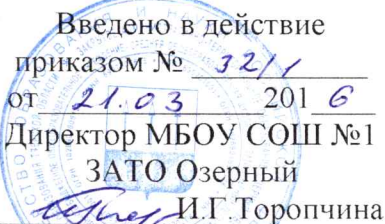 Введено в действие
приказом № 32/1
от 21.03 2016
Директор МБОУ СОШ №1
ЗАТО Озерный
И.Г.Торопчина